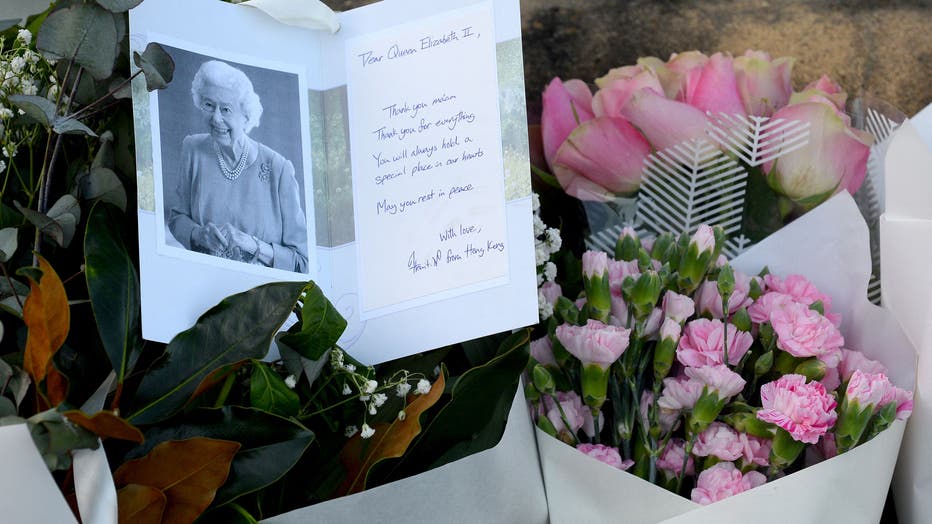 Dear Queen Elizabeth II,
Thank you ma'am
Thank you for everything
You will always hold a
special place in our hearts
May you rest in peace
With love,
from Hong Kong